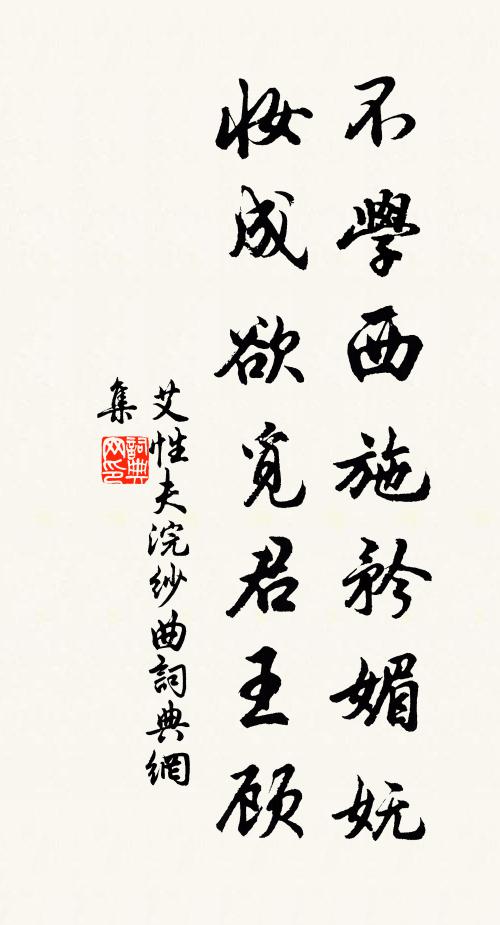 不學西施矜媚妩
妝成欲覓君王顾
艾性夫浣紗曲詞典網
集
詞典网印